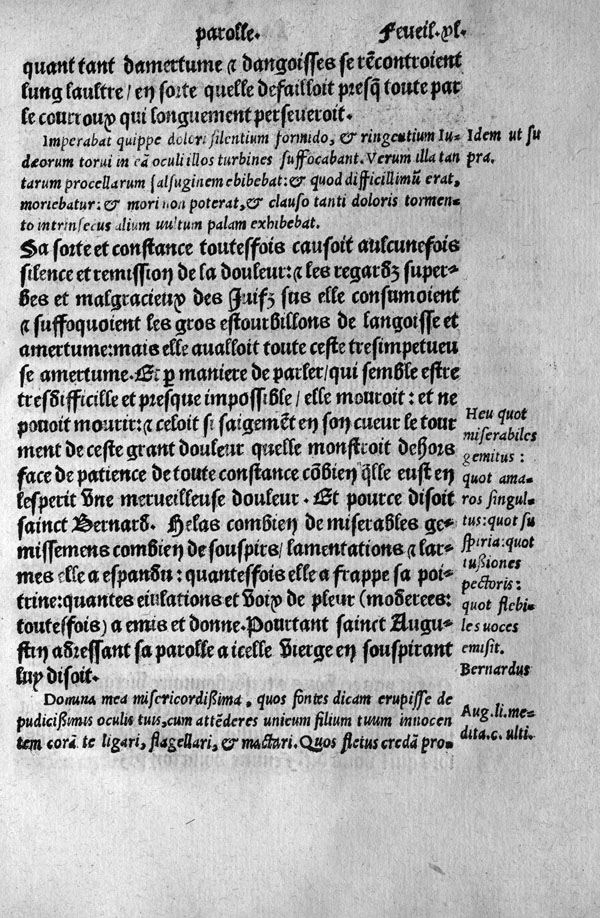 parolle. Feueil.xl.
quant tant damertume & dangoisses se rẽcontroient
lung laultre/en sorte quelle defailloit presq̃ toute par
le courroux qui longuement perseueroit.
Imperabat quippe dolori silentium formido, & ringentium Iu-
dæorum torui in eã oculi illos turbines suffocabant. Verum illa tan
tarum procellarum salsuginem ebibebat: & quod difficillimũ erat,
moriebatur: & mori non poterat, & clauso tanti doloris tormen-
to intrinsecus alium uultum palam exhibebat.
Idem ut su
pra.
Sa sorte et constance toutesfois causoit aulcunefois
silence et remission de la douleur: & les regardz super-
bes et malgracieux des Juifz sus elle consumoient
& suffoquoient les gros estourbillons de langoisse et
amertume: mais elle aualloit toute ceste tresimpetueu
se amertume. Et ꝑ maniere de parler/qui semble estre
tresdifficille et presque impossible/ elle mouroit: et ne
pouoit mourir: & celoit si saigemẽt en son cueur le tour
ment de ceste grant douleur quelle monstroit dehors
face de patience de toute constance cõbien q̃lle eust en
lesperit vne merueilleuse douleur. Et pource disoit
sainct Bernard. Helas combien de miserables ge-
missemens combien de souspirs/ lamentations & lar-
mes elle a espandu: quantesfois elle a frappe sa poi-
trine: quantes eiulations et voix de pleur (moderees:
toutesfois) a emis et donne. Pourtant sainct Augu-
stin adressant sa parolle a icelle Vierge en souspirant
luy disoit.
Heu quot
miserabiles
gemitus:
quot ama-
ros singul-
tus: quot su
spiria: quot
tußiones
pectoris:
quot flebi-
les uoces
emisit.
Bernardus
Domina mea misericordißima, quos fontes dicam erupisse de
pudicißimis oculis tuis, cum attẽderes unicum filium tuum innocen
tem corã te ligari, flagellari, & mactari. Quos fletus credã pro-
Aug. li. me-
dita. c. ulti.